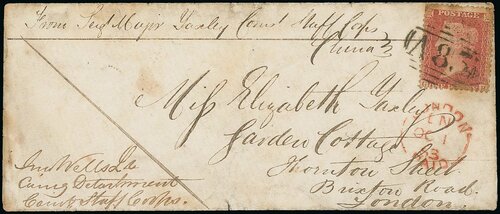 From Serj Major Yaxley Comt Staff Corps
China
POSTAGE
A 8
Miss Elizabeth Yaxley
Garden Cottage
Thornton Street
Brixton Road
London.
LONDON
EN
OC 1
63
PAID
Wells Lt
Comg Detachment
Comt Staff Corps.